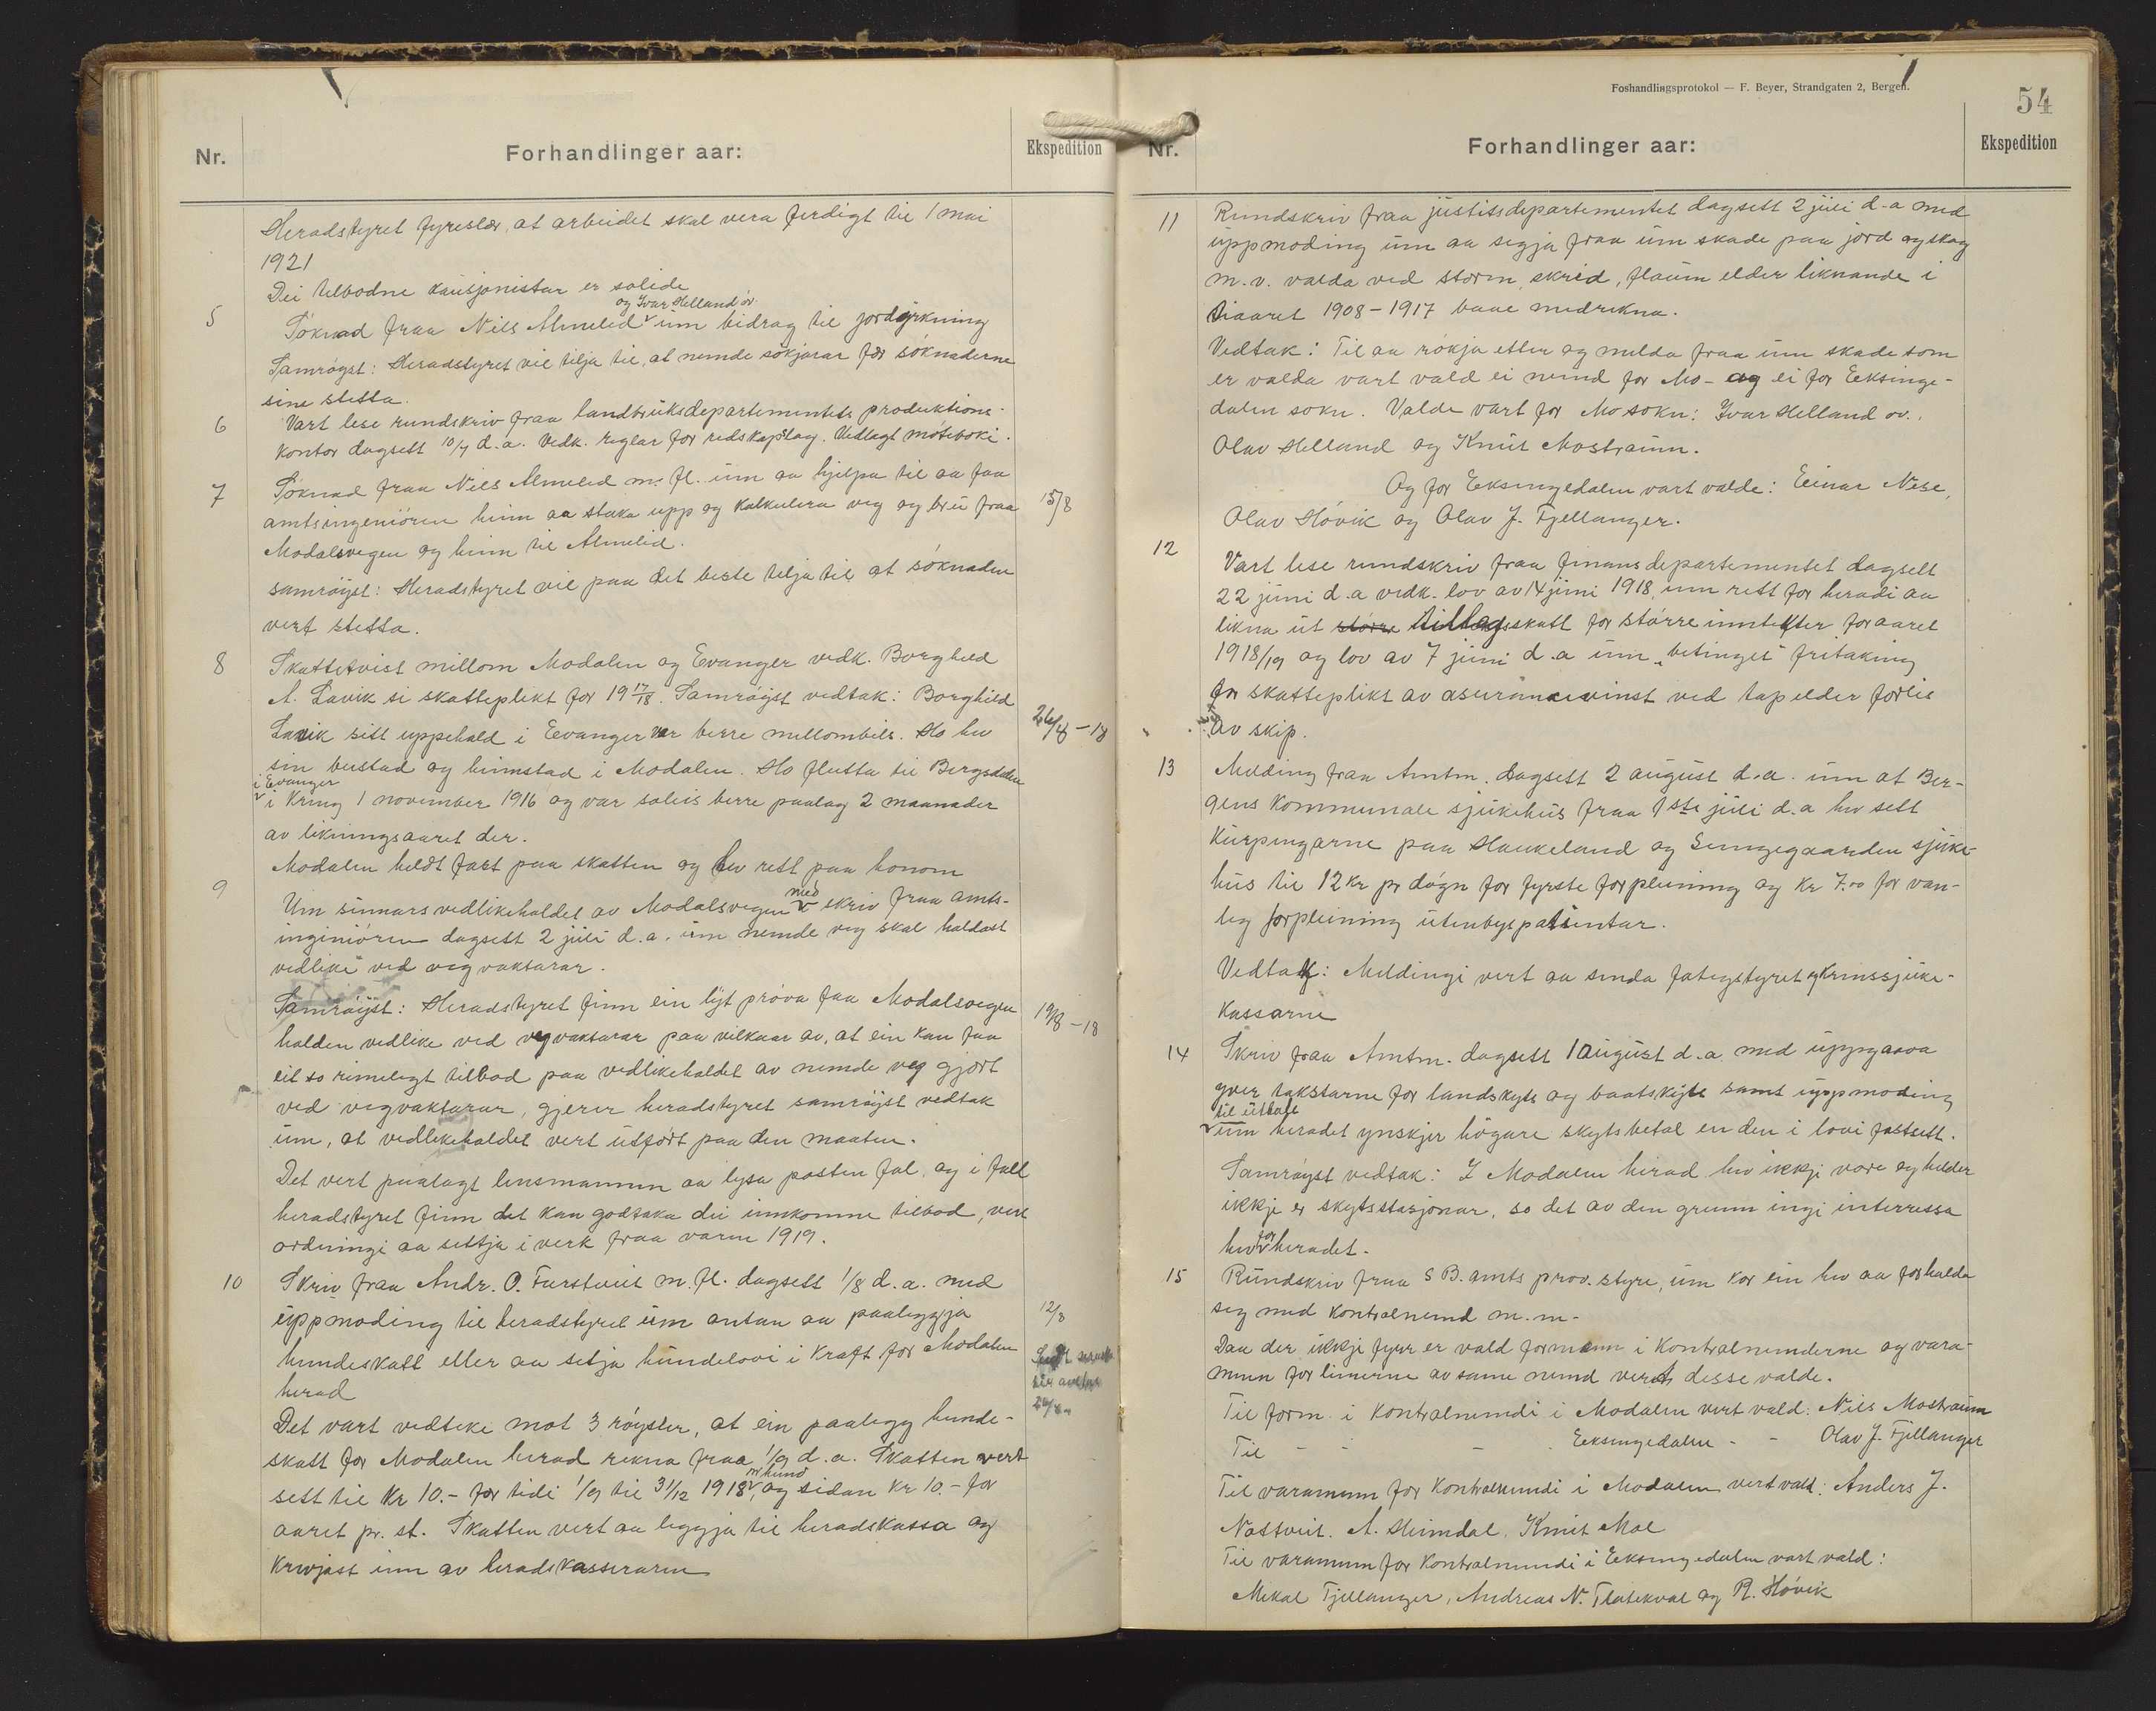 Nr.
Forhandlinger aar:
Ekspedition
Heradstyret fyreslær, at arbeidet skal vera ferdigt til 1 mai
1921
Dei tilbodne kausjonistar er solide
og Ivar Helland öv.
5 Söknad fraa Nils Almelid um bidrag til jorddyrkning
Samröyst: Heradstyret vil tilja til, at nemde sökjarar fær söknaderne
sine stetta.
6 Vart lese rundskriv fraa landbruksdepartementets produktions-
kontor dagsett 10/7 d.a. vedk. reglar for redskapslag. Vedlagt möteboki.
7 Söknad fraa Nils Almelid m. fl. um aa hjelpa til aa faa
amtsingeniören hinn aa staka upp og kalkulera veg og bru fraa 15/8
Modalsvegen og hinn til Almelid.
samröyst: Heradstyret vil paa det beste tilja til, at söknaden
vert stetta.
8 Skattetvist millom Modalen og Evanger vedk. Borghild
A. Lavik si skatteplikt for 19 17/18. Samröyst vedtak: Borghild
Lavik sitt uppehald i Evanger var berre millombils. Ho hev 26/8-18
sin bustad og heimstad i Modalen. Ho flutta til Bergsdalen
i Evanger
i kring 1 november 1916 og var soleis berre paalag 2 maanader
av likningsaaret der.
Modalen heldt fast paa skatten og hev rett paa honom
9 Um sumars vedlikehaldet av Modalsvegen med skriv fraa amts-
inginiören dagsett 2 juli d.a. um nemde veg skal haldast
vedlike ved vegvaktarar.
Samröyst: Heradstyret finn ein lyt pröva faa Modalsvegen 19/8-18
halden vedlike ved vegvaktarar paa vilkaar av, at ein kan faa
eit so rimelegt tilbod paa vedlikehaldet av nemde veg gjort
ved vegvaktarar, gjerer heradstyret samröyst vedtak
um, at vedlikehaldet vert utfört paa den maaten.
Det vert paalagt lensmannen aa lysa posten fal og i fall
heradstyret finn det kan godtaka dei innkomne tilbod, vert
ordningi aa settja i verk fraa varen 1919.
10 Skriv fraa Andr. O. Farstveit m. fl. dagsett 1/8 d.a. med
uppmoding til heradstyret um antan aa paaleggja 12/8
hundeskatt eller aa setja hundelovi i kraft for Modalen
herad
Det vart vedteke mot 3 röyster, at ein paalegg hunde-
skatt for Modalen herad rekna fraa 1/9 d.a. Skatten vert
sett til Kr 10.- for tidi 1/9 til 31/12 1918 pr hund, og sidan Kr 10.- for
aaret pr. st. Skatten vert aa leggja til heradskassa og
krevjast inn av heradskasseraren
Foshandlingsprotokol — F. Beyer, Strandgaten 2, Bergen.
54
Nr.
Forhandlinger aar:
Ekspedition
11 Rundskriv fraa justitsdepartementet dagsett 2 juli d.a med
uppmoding um aa segja fraa um skade paa jord og skog
m.v. valda ved storm, skrid, flaum elder liknande i
tiaaret 1908-1917 baae medrekna.
Vedtak: Til aa rökja etter og melda fraa um skade som
er valda vart vald ei nemd for Mo- og ei for Eeksinge-
dalen sokn. Valde vart for Mo sokn: Ivar Helland öv.,
Olav Helland og Knut Mostraum.
Og for Eeksingedalen vart valde: Einar Nese,
Olav Hövik og Olav J. Fjellanger.
12 Vart lese rundskriv fraa finansdepartementet dagsett
22 juni d.a vedk. lov av 14 juni 1918, um rett for heradi aa
likna ut större tillagsskatt for större inntekter for aaret
1918/19 og lov av 7 juni d.a um "betinget" fritaking
for skatteplikt av asuransevinst ved tap elder forlis
av skip.
13 Melding fraa Amtm. dagsett 2 august d.a. um at Ber-
gens kommunale sjukehus fraa 1ste juli d.a hev sett
kurpengarne paa Haukeland og Sengegaarden sjuke-
hus til 12 kr pr dögn for fyrste forpleining og Kr 7.00 for van-
leg forpleining utenbys patientar.
Vedtak: Meldingi vert aa senda fategstyret og Krinssjuke-
kassarne
14 Skriv fraa Amtm. dagsett 1 august d.a med uppgaava
yver takstarne for landskyss og baatskyts samt uppmoding
til uttale
um heradet ynskjer högare skytsbetal en den i lovi fastsett.
Samröyst vedtak: I Modalen herad hev ikkje vore og helder
ikkje er skytsstasjonar, so det av den grunn ingi interressa
hev for heradet.
15 Rundskriv fraa S B. amts prov. styre, um kor ein hev aa forhalda
seg med kontralnemd m.m.
Daa der ikkje fyrr er vald formann i kontralnemderne og vara-
menn for limerne av same nemd vert desse valde.
Til form. i kontralnemdi i Modalen vert vald: Nils Mostraum
Til - - - Eeksingedalen - - Olav J. Fjellanger
Til varamenn for kontralnemdi i Modalen vert vald: Anders J.
Nottveit. A. Heimdal. Knut Moe
Til varamenn for kontralnemdi i Eeksingedalen vart vald:
Mikal Fjellanger, Andreas N. Flatekval og R. Hövik